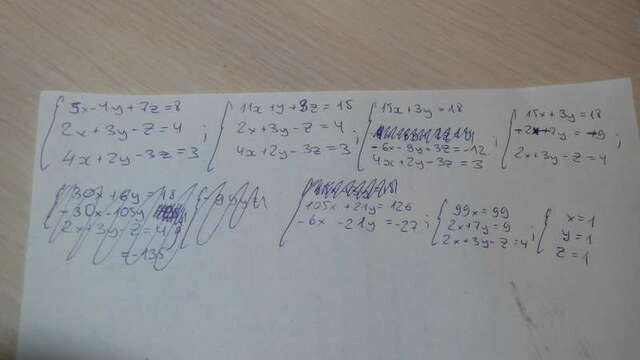 5x-4y+7z=8
2x+3y-z=4 ;
4x+2y-3z=3
11x+y+3z=15
2x+3y-z=4 ;
4x+2y-3z=3
15x+3y=18
-6x-9y+3z=-12
4x+2y-3z=3
15x+3y=18
2x+7y=9
2x+3y-z=4 ;
30x+6y=
-30x-105y
2x+3y-z=4
=-135
105x+21y=126
-6x -21y=-27 ;
99x=99
2x+7y=9 ;
2x+3y-z=4
x=1
y=1
z=1